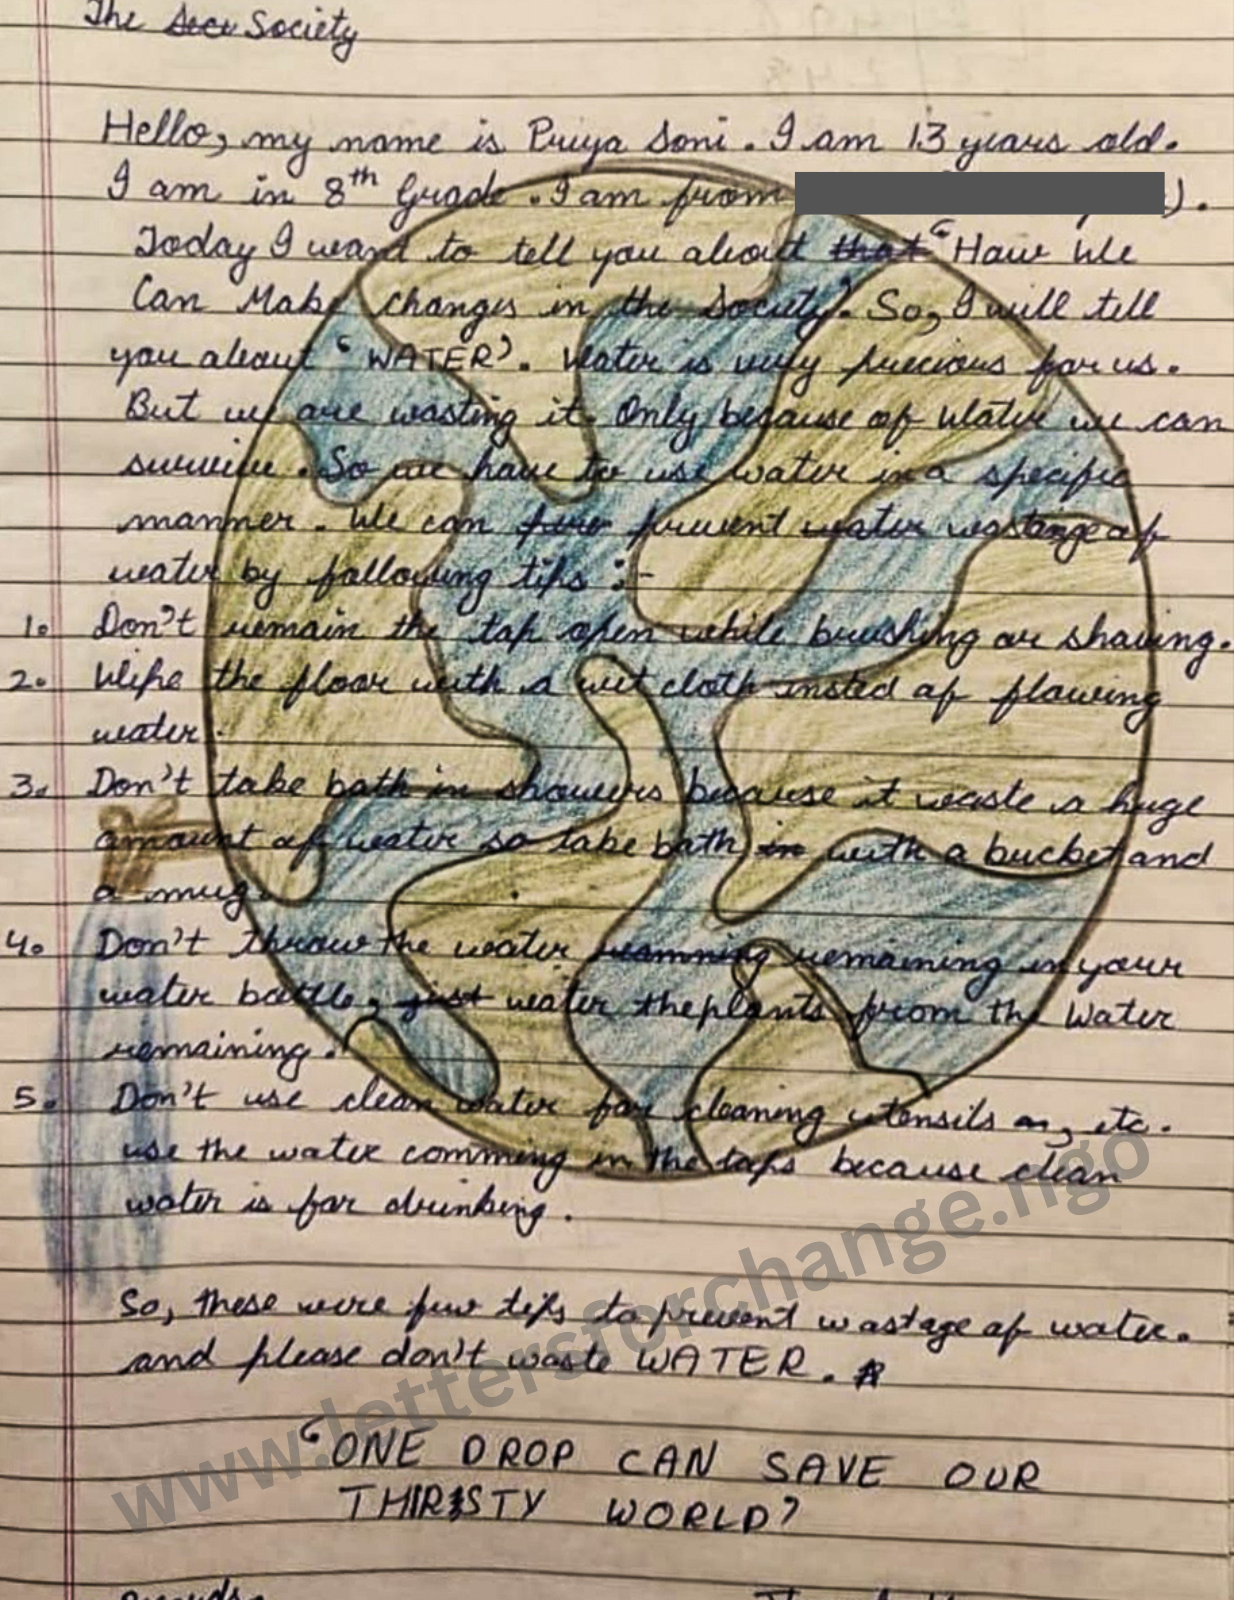 The Society
Hello, my name is Priya Soni. I am 13 years old.
I am in 8th Grade. I am from ).
Today I want to tell you about that 'How We
Can Make changes in the Society'. So, I will tell
you about 'WATER'. Water is very precious for us.
But we are wasting it. Only because of Water we can
survive. So we have to use water in a specific
manner. We can prevent water wastange of
water by following tips :-
1. Don't remain the tap open while brushing or shaving.
2. Wipe the floor with a wet cloth insted of flowing
water.
3. Don't take bath in showers because it waste a huge
amount of water so take bath in with a bucket and
a mug.
4. Don't throw the water reamning remaining in your
water bottle, just water the plants from the Water
remaining.
5. Don't use clean water for cleaning utensils on, etc.
use the water comming in the taps because clean
water is for drinking.
So, these were few tips to prevent wastage of water.
and please don't waste WATER.
'ONE DROP CAN SAVE OUR
THIRSTY WORLD'
www.lettersforchange.ngo